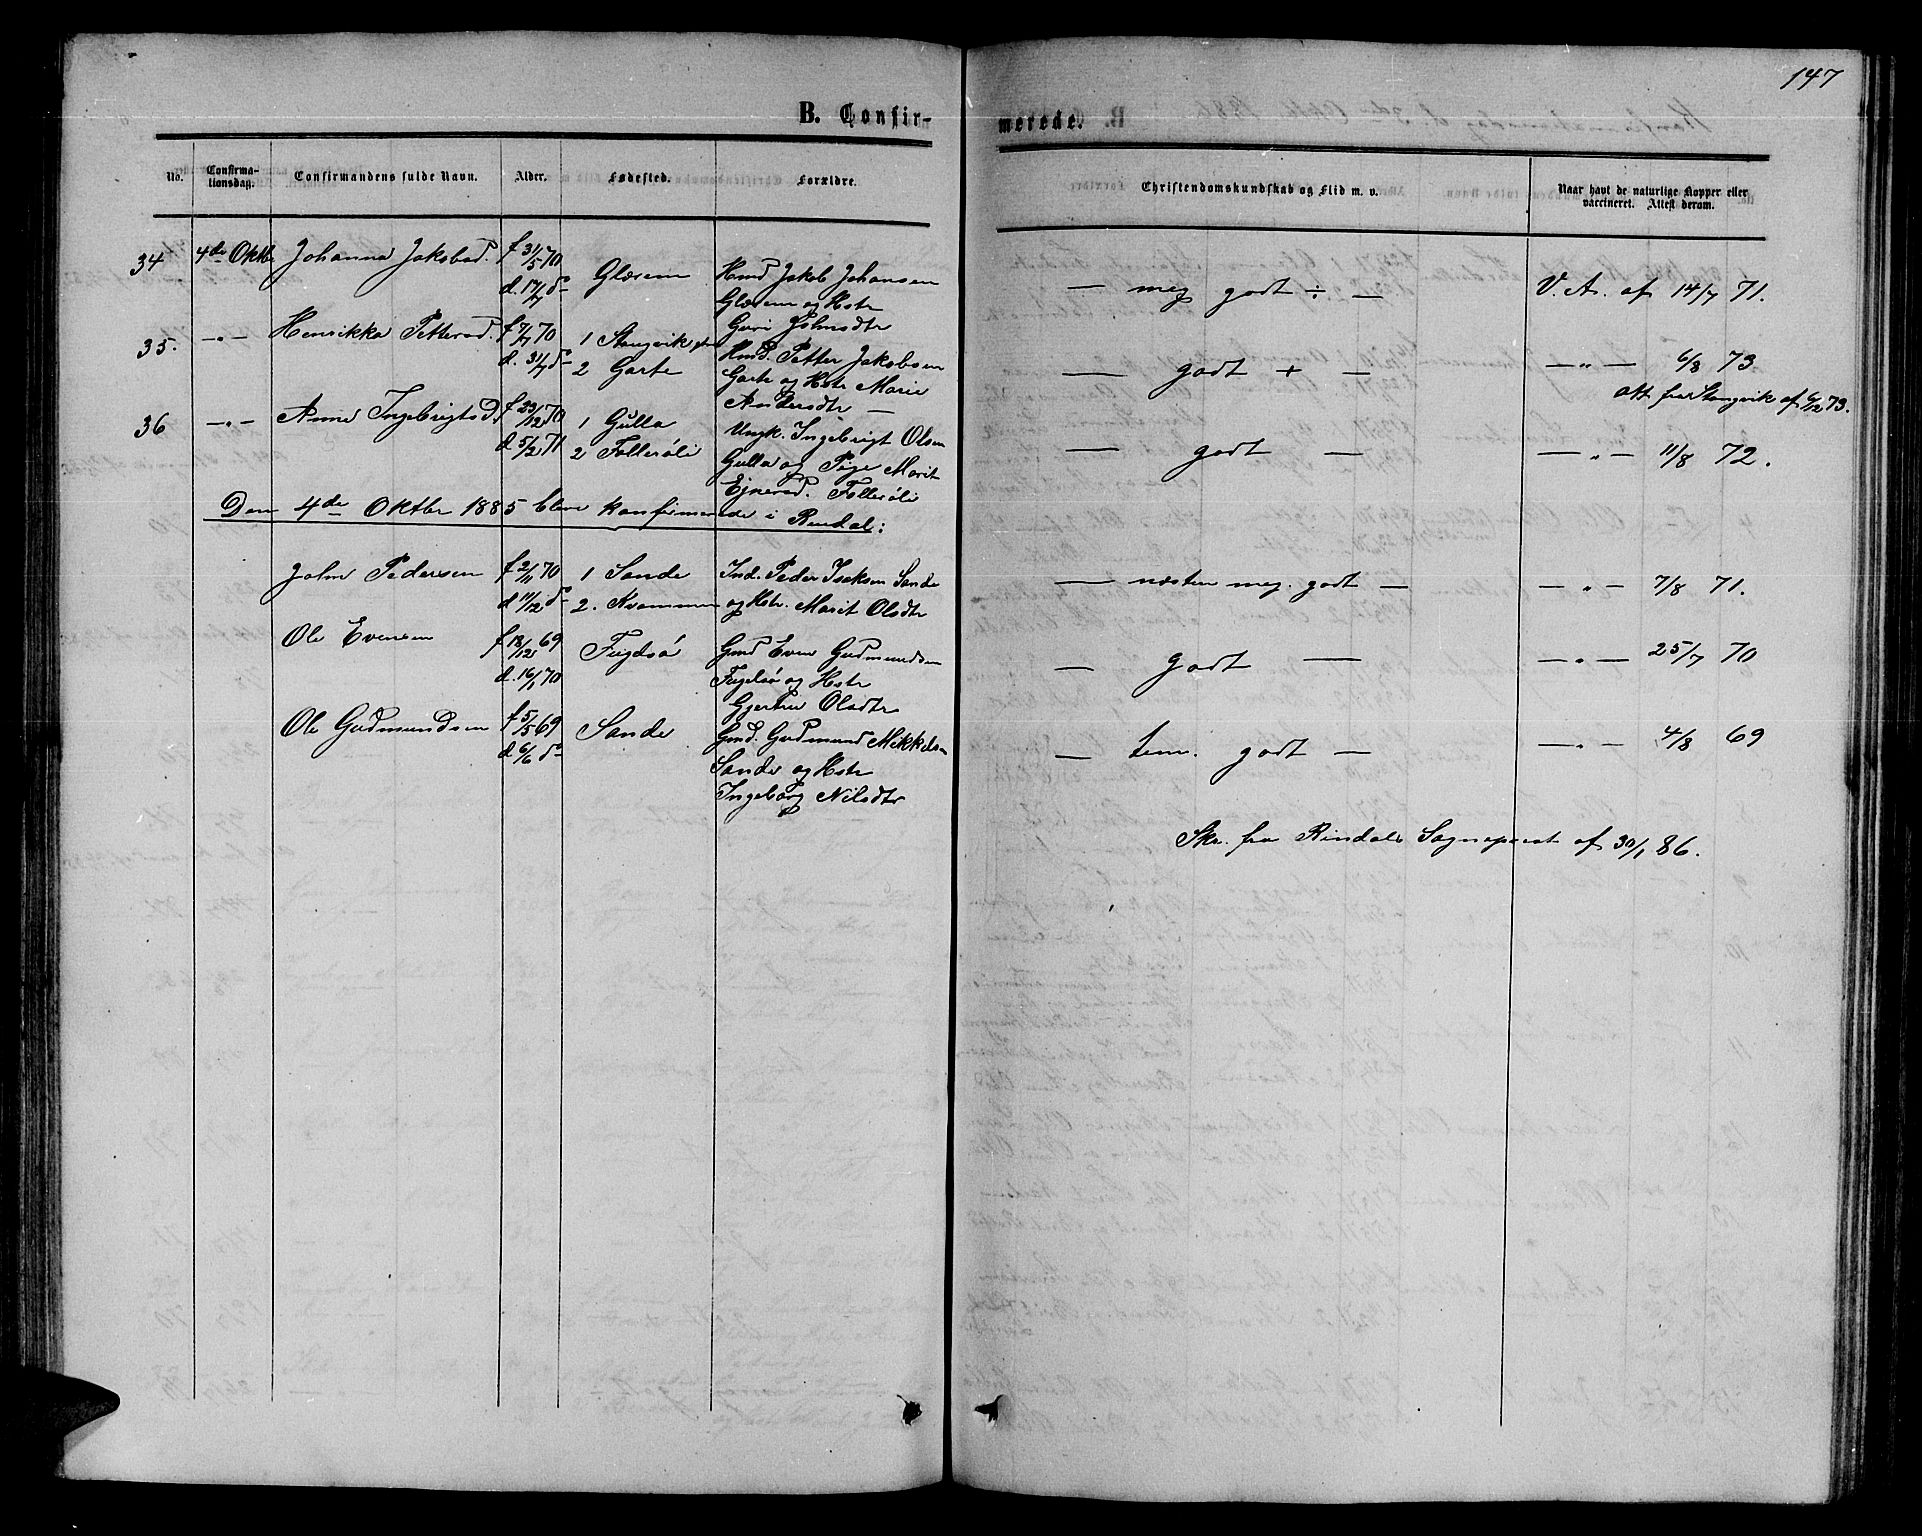 147
B. Confirmerede.
No.
Confirmationsdag.
Confirmandens fulde Navn.
Alder.
Fødested.
Forældre.
Christendomskundskab og Flid m. v.
Naar havt de naturlige Kopper eller vaccineret. Attest derom.
34 4de Oktbr Johanna Jakobsd. f 31/5 70
d. 17/7 do
Glærem
Hmd Jakob Johansen
Glærem og Hstr
Guri Johnsdtr
— meg godt ÷ —
V. A. af 14/7 71.
35. —"— Henrikka Pettersd. f 7/7 70
d. 31/7 do
1 Stangvik
2 Garte
Hmd. Petter Jakobsen
Garte og Hstr Marie
Andersdtr —
— godt + —
—"— 6/8 73
Att. fra Stangvik af 6/12 73.
36 —"— Anne Ingebrigtsd. f 23/12 70
d. 5/2 71
1 Gulla
2 Follerøli
Ungk. Ingebrigt Olsen
Gulla og Pige Marit
Ejnersd. Follerøli
— godt —
—"— 11/8 72.
Den 4de Oktbr 1885 bleve konfirmerede i Rindal:
John Pedersen f 2/11 70
d 11/12 do
1 Sande
2. Kvammen
Ind. Peder Isaksen Sande
og Hstr. Marit Olsdtr
— næsten meg. godt —
—"— 7/8 71.
Ole Evensen f 18/12 69
d. 16/1 70
Fugelsø
Gmd Even Gudmundsen
Fugelsø og Hstr
Gjertru Olsdtr
— godt —
—"— 25/7 70
Ole Gudmundsen f 5/5 69
d. 6/6 do
Sande
Gmd. Gudmund Mikkelsen
Sande og Hstr
Ingeborg Nilsdtr
— tem. godt —
—"— 4/8 69
Skr. fra Rindals Sognepræst af 30/1 86.